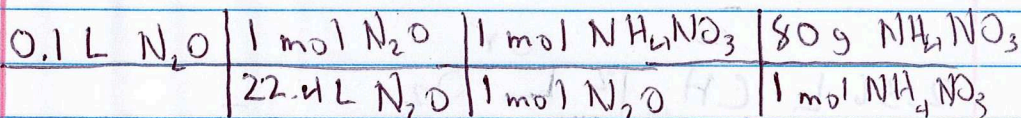 0.1 L N₂O | 1 mol N₂O | 1 mol NH₄NO₃ | 80 g NH₄NO₃
22.4 L N₂O | 1 mol N₂O | 1 mol NH₄NO₃